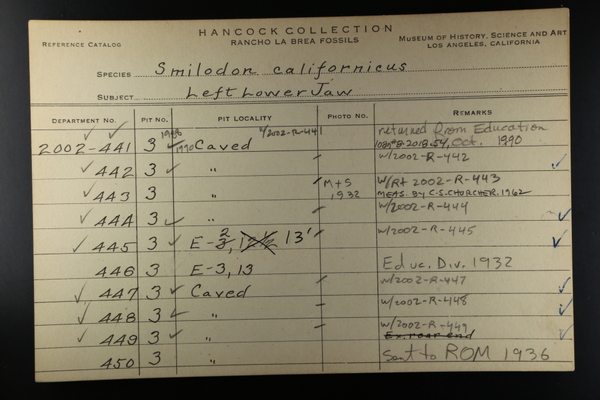 HANCOCK COLLECTION
REFERENCE CATALOG
RANCHO LA BREA FOSSILS
MUSEUM OF HISTORY, SCIENCE AND ART
LOS ANGELES, CALIFORNIA
SPECIES Smilodon californicus
SUBJECT Left Lower Jaw
DEPARTMENT NO. PIT NO. PIT LOCALITY PHOTO NO. REMARKS
2002-441 3 Caved w/2002-R-441 returned from Education
Oct. 1990
442 3 1990 " w/2002-R-442
443 3 " M+S 1932 w/Rt 2002-R-443
MEAS. BY C.S. CHURCHER, 1962
444 3 " w/2002-R-444
445 3 E-3, 13' w/2002-R-445
446 3 E-3, 13 Educ. Div. 1932
447 3 Caved w/2002-R-447
448 3 " w/2002-R-448
449 3 " w/2002-R-449
Ex. rear end
450 3 " Sent to ROM 1936